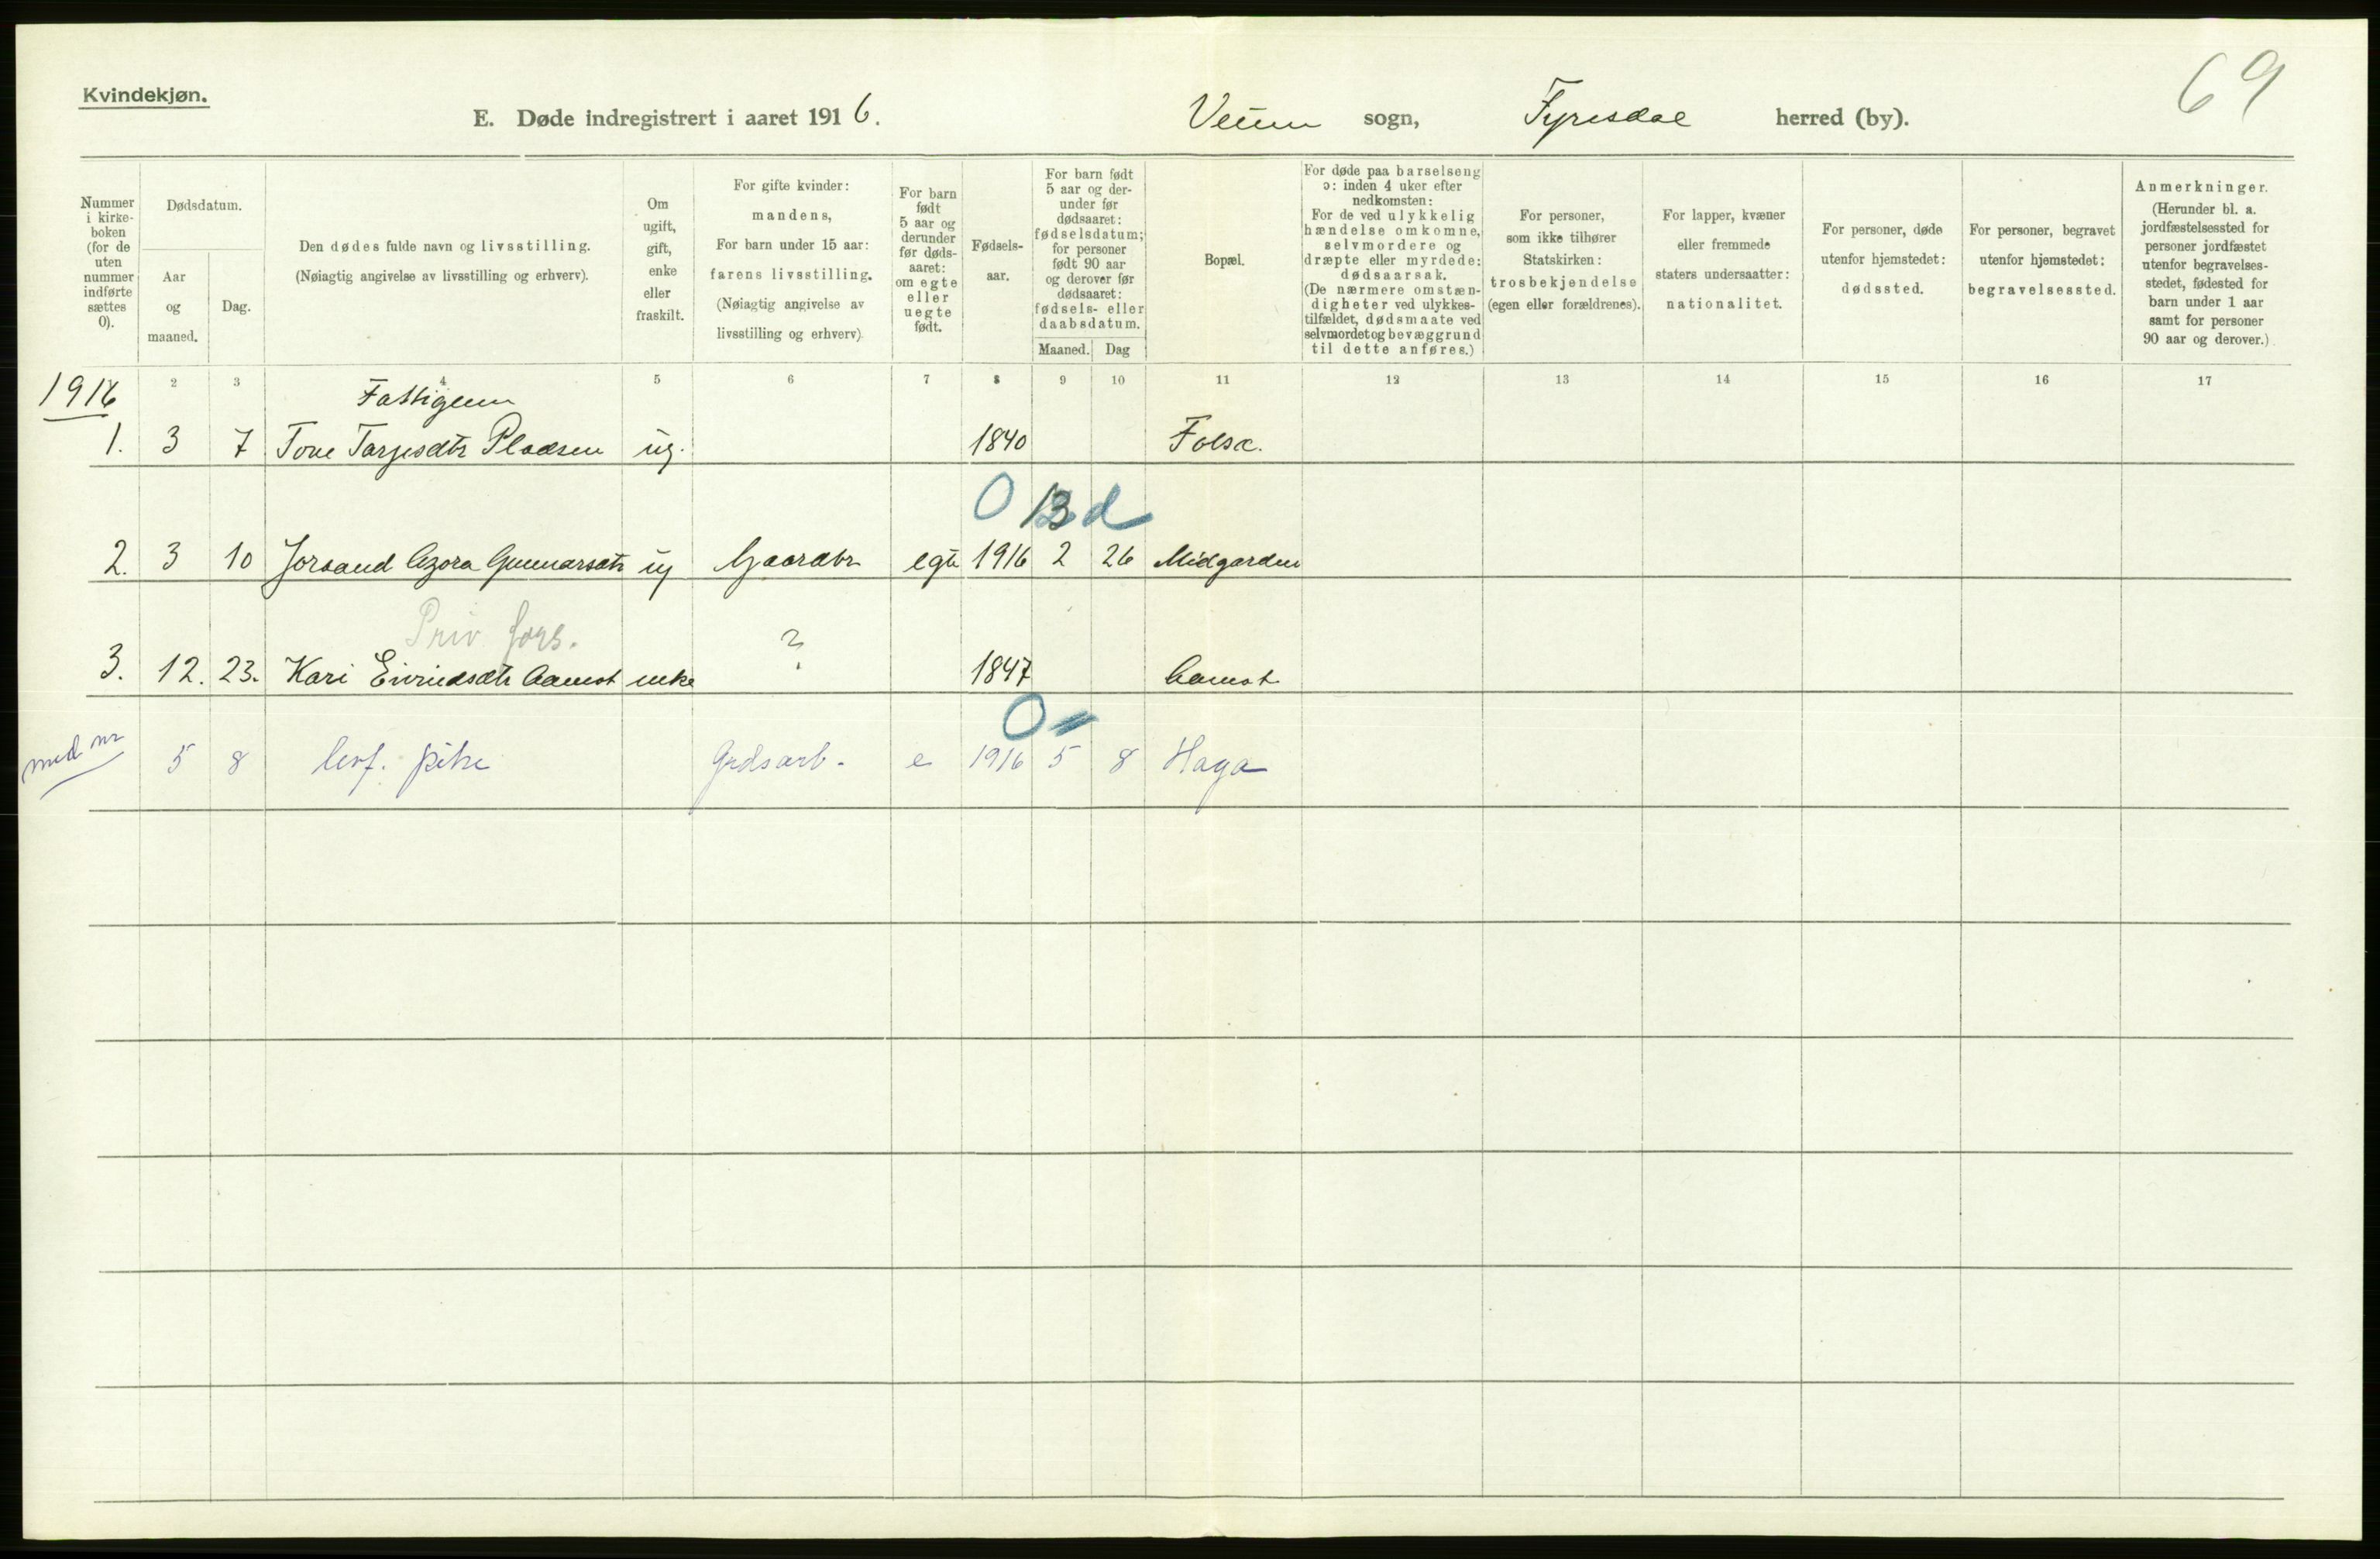 Kvindekjøn.
69
E. Døde indregistrert i aaret 1916.
Veum sogn, Fyresdal herred (by).
Nummer i kirke-boken (for de uten nummer indførte sættes 0).
Dødsdatum.
Aar og maaned.
Dag.
Den dødes fulde navn og livsstilling.
(Nøiagtig angivelse av livsstilling og erhverv).
Om ugift, gift, enke eller fraskilt.
For gifte kvinder: mandens,
For barn under 15 aar: farens livsstilling.
(Nøiagtig angivelse av livsstilling og erhverv).
For barn født 5 aar og derunder før døds-aaret: om egte eller uegte født.
Fødsels-aar.
For barn født 5 aar og der-under før dødsaaret: fødselsdatum; for personer født 90 aar og derover før dødsaaret: fødsels- eller daabsdatum.
Maaned. Dag
Bopæl.
For døde paa barselseng ɔ: inden 4 uker efter nedkomsten:
For de ved ulykkelig hændelse omkomne, selvmordere og dræpte eller myrdede: dødsaarsak.
(De nærmere omstæn-digheter ved ulykkes-tilfældet, dødsmaate ved selvmordet og bevæggrund til dette anføres.)
For personer, som ikke tilhører Statskirken: trosbekjendelse (egen eller forældrenes).
For lapper, kvæner eller fremmede staters undersaatter: nationalitet.
For personer, døde utenfor hjemstedet: dødssted.
For personer, begravet utenfor hjemstedet: begravelsessted.
Anmerkninger.
(Herunder bl. a. jordfæstelsessted for personer jordfæstet utenfor begravelses-stedet, fødested for barn under 1 aar samt for personer 90 aar og derover.)
1916 2 3 4 5 6 7 8 9 10 11 12 13 14 15 16 17
Fattiglem
1. 3 7 Tone Tarjesdtr Pladsen ug. 1840 Folsæ.
0 13 d
2. 3 10 Jorand Azora Gunnarsdtr ug Gaardbr egte 1916 2 26 Midgarden
Priv fors.
3. 12. 23. Kari Eivindsdtr Aamot enke ? 1847 Aamot
0
5 8 levf. pike Grdsarb. e 1916 5 8 Haga